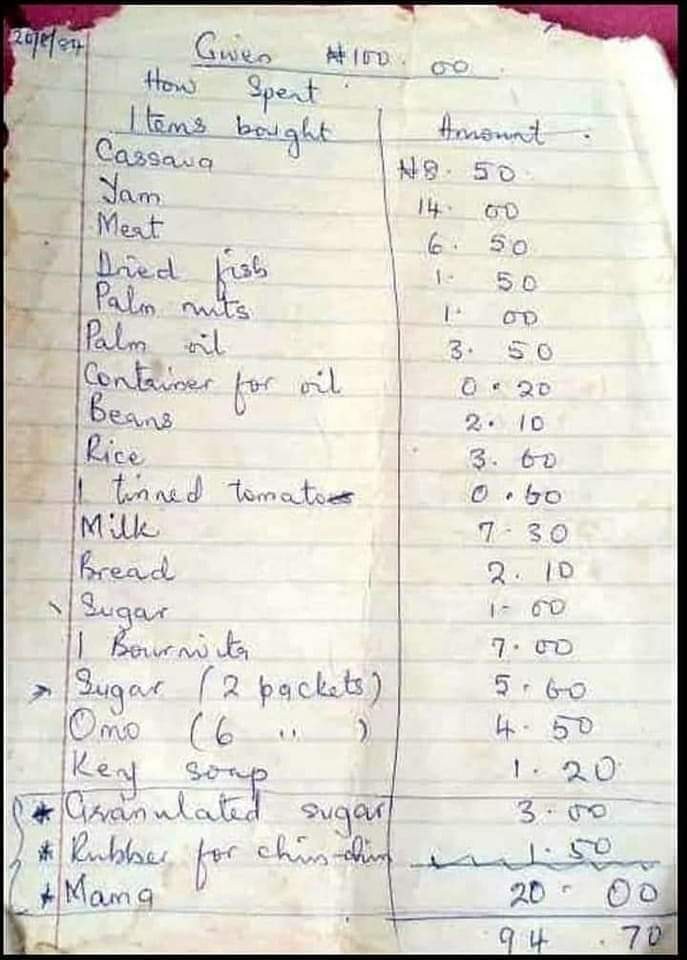 Given ₦100.00
How Spent
Items bought Amount.
Cassava ₦8.50
Yam 14.00
Meat 6.50
Dried fish 1.50
Palm nuts 1.00
Palm oil 3.50
Container for oil 0.20
Beans 2.10
Rice 3.60
1 tinned tomatoes 0.60
Milk 7.30
Bread 2.10
Sugar 1-00
1 Bournvita 7.00
Sugar (2 packets) 5.60
Omo (6 ,, ) 4.50
Key soap 1.20
* Granulated sugar 3.00
* Rubber for chin-chin 1.50
* Mama 20.00
94.70